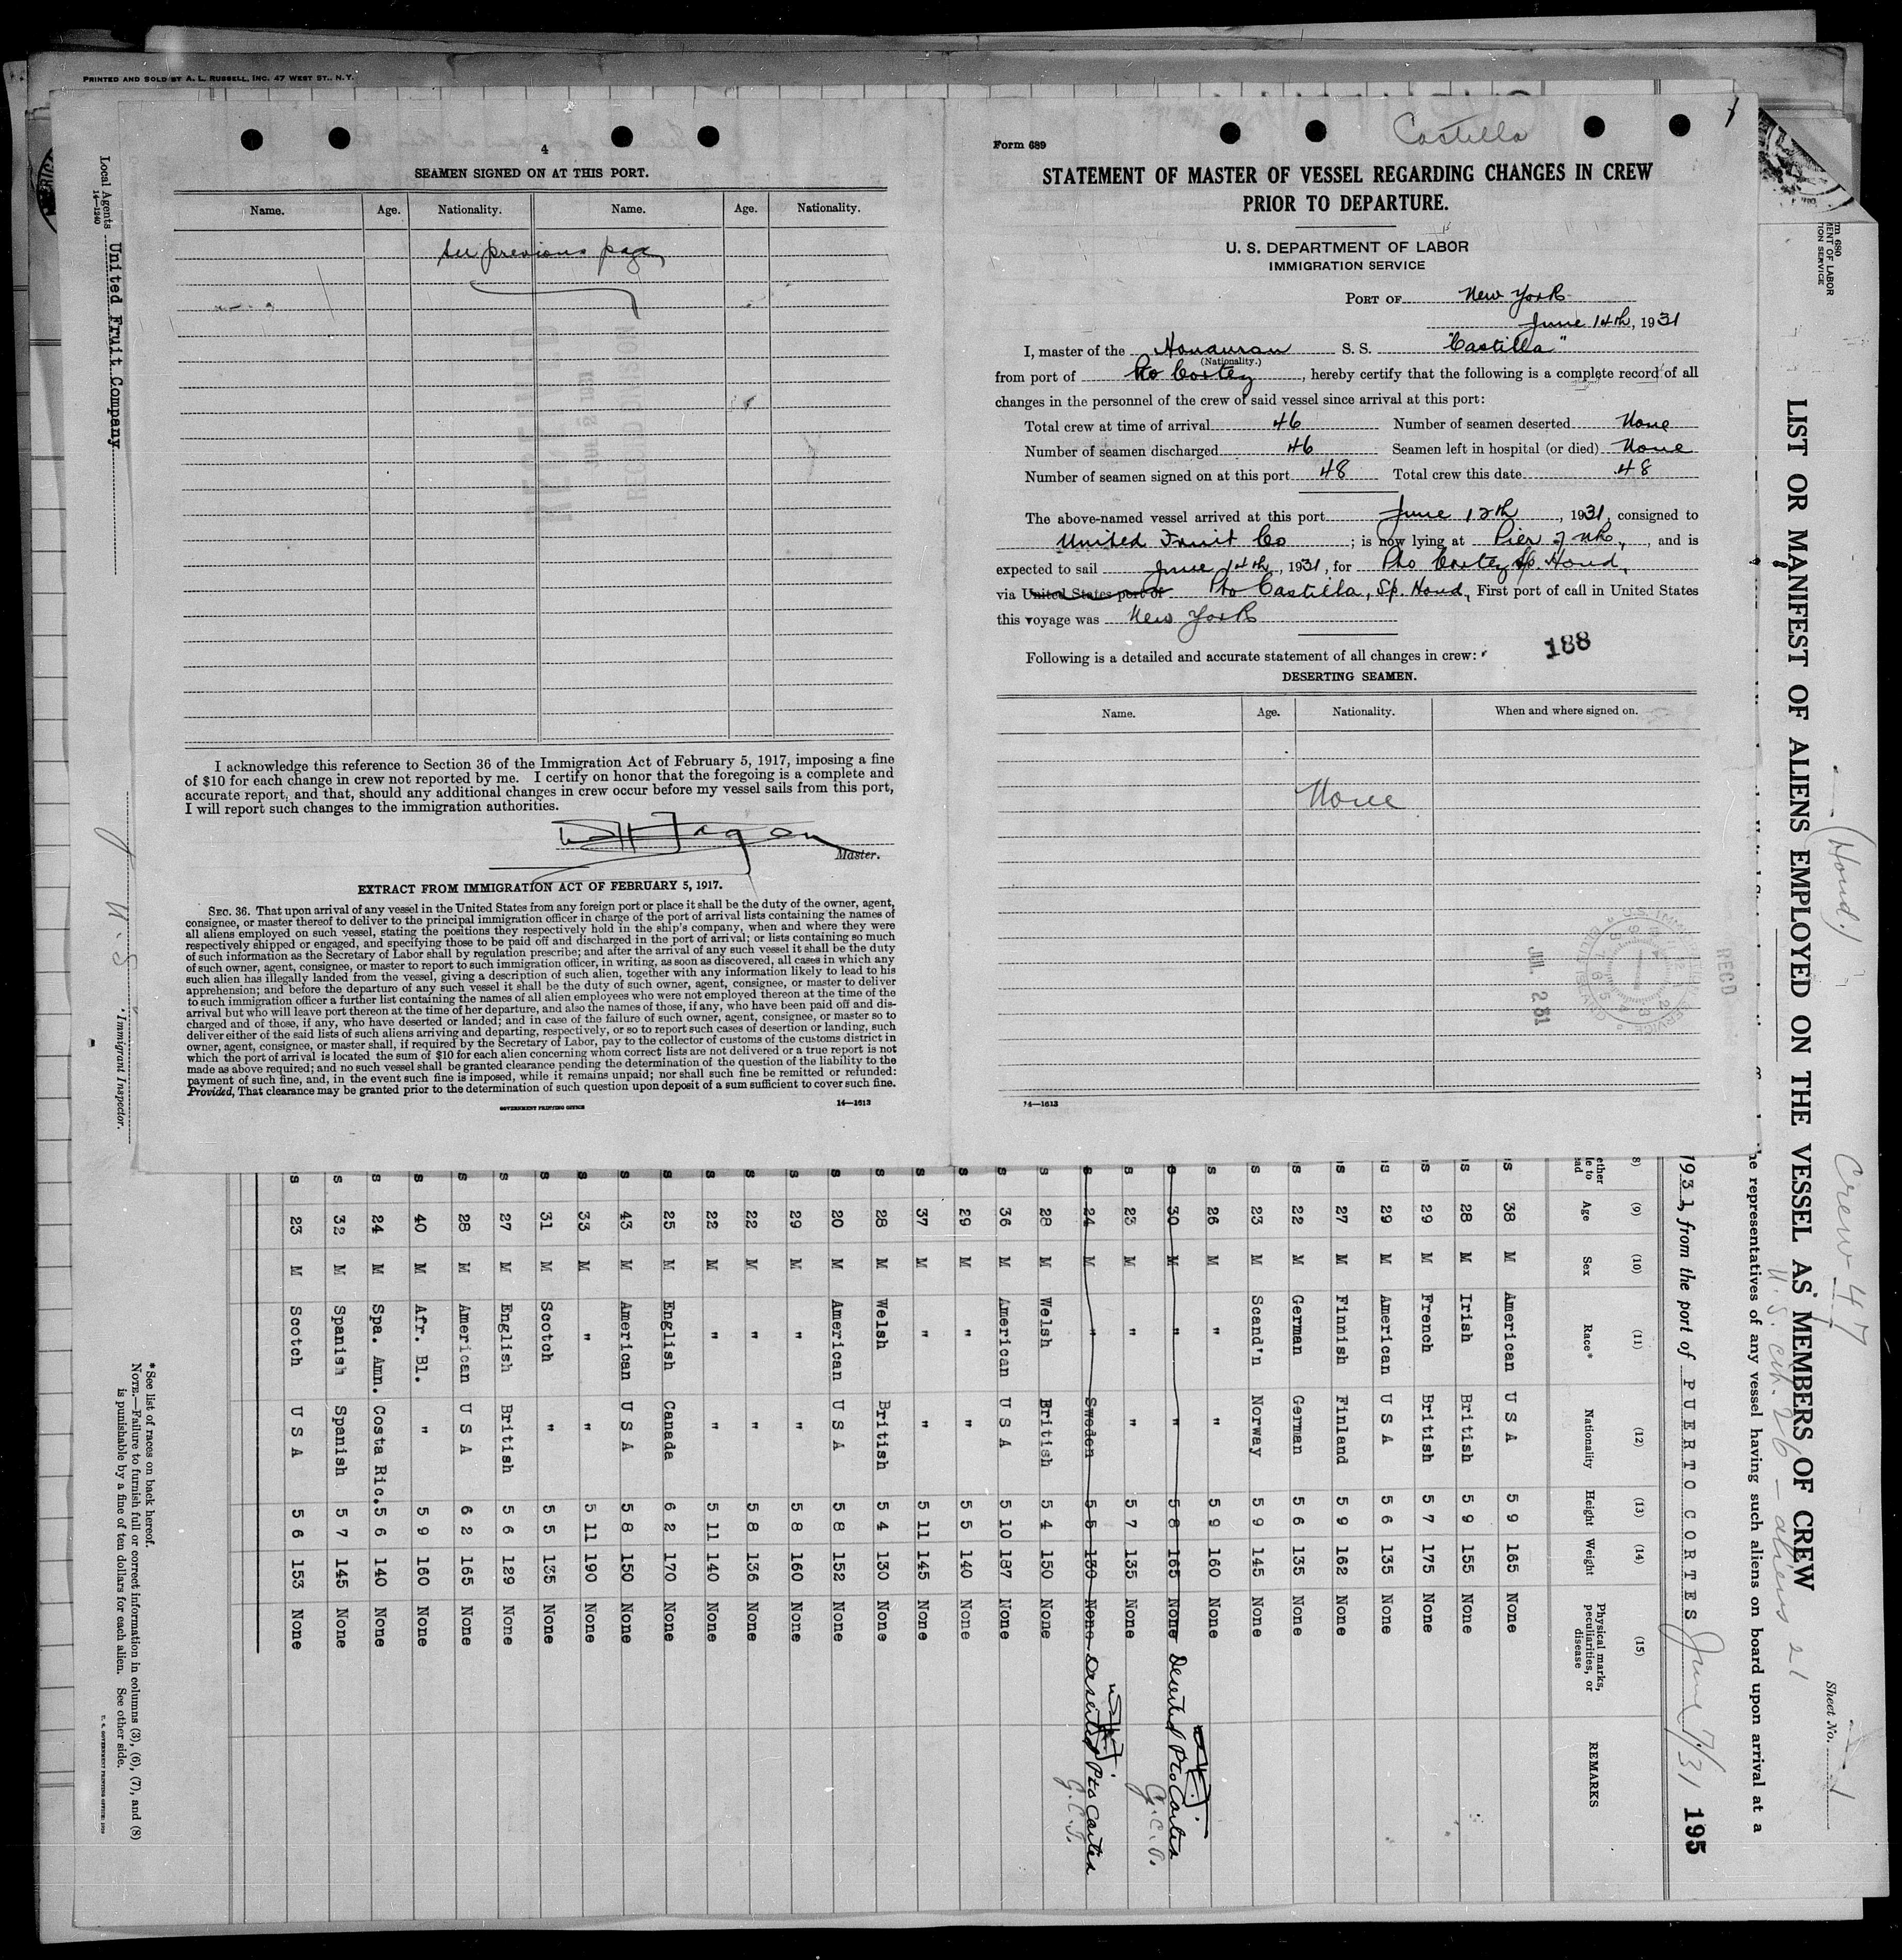 PRINTED AND SOLD BY A. L. RUSSELL, INC. 47 WEST ST., N.Y.
4
SEAMEN SIGNED ON AT THIS PORT.
Name. Age. Nationality. Name. Age. Nationality.
See previous page
I acknowledge this reference to Section 36 of the Immigration Act of February 5, 1917, imposing a fine
of $10 for each change in crew not reported by me. I certify on honor that the foregoing is a complete and
accurate report, and that, should any additional changes in crew occur before my vessel sails from this port,
I will report such changes to the immigration authorities.
Fagen
Master.
EXTRACT FROM IMMIGRATION ACT OF FEBRUARY 5, 1917.
SEC. 36. That upon arrival of any vessel in the United States from any foreign port or place it shall be the duty of the owner, agent,
consignee, or master thereof to deliver to the principal immigration officer in charge of the port of arrival lists containing the names of
all aliens employed on such vessel, stating the positions they respectively hold in the ship's company, when and where they were
respectively shipped or engaged, and specifying those to be paid off and discharged in the port of arrival; or lists containing so much
of such information as the Secretary of Labor shall by regulation prescribe; and after the arrival of any such vessel it shall be the duty
of such owner, agent, consignee, or master to report to such immigration officer, in writing, as soon as discovered, all cases in which any
such alien has illegally landed from the vessel, giving a description of such alien, together with any information likely to lead to his
apprehension; and before the departure of any such vessel it shall be the duty of such owner, agent, consignee, or master to deliver
to such immigration officer a further list containing the names of all alien employees who were not employed thereon at the time of the
arrival but who will leave port thereon at the time of her departure, and also the names of those, if any, who have been paid off and dis-
charged and of those, if any, who have deserted or landed; and in case of the failure of such owner, agent, consignee, or master so to
deliver either of the said lists of such aliens arriving and departing, respectively, or so to report such cases of desertion or landing, such
owner, agent, consignee, or master shall, if required by the Secretary of Labor, pay to the collector of customs of the customs district in
which the port of arrival is located the sum of $10 for each alien concerning whom correct lists are not delivered or a true report is not
made as above required; and no such vessel shall be granted clearance pending the determination of the question of the liability to the
payment of such fine, and, in the event such fine is imposed, while it remains unpaid; nor shall such fine be remitted or refunded:
Provided, That clearance may be granted prior to the determination of such question upon deposit of a sum sufficient to cover such fine.
GOVERNMENT PRINTING OFFICE 14—1613
Castilla
Form 689
STATEMENT OF MASTER OF VESSEL REGARDING CHANGES IN CREW
PRIOR TO DEPARTURE.
U. S. DEPARTMENT OF LABOR
IMMIGRATION SERVICE
PORT OF New York
June 14th, 1931
I, master of the Honduran S. S. "Castilla"
(Nationality.)
from port of Pto Cortez, hereby certify that the following is a complete record of all
changes in the personnel of the crew of said vessel since arrival at this port:
Total crew at time of arrival 46 Number of seamen deserted None
Number of seamen discharged 46 Seamen left in hospital (or died) None
Number of seamen signed on at this port 48 Total crew this date 48
The above-named vessel arrived at this port June 12th, 1931, consigned to
United Fruit Co; is now lying at Pier 7 NR, and is
expected to sail June 14th, 1931, for Pto Cortez Sp. Hond,
via United States port of Pto Castilla, Sp. Hond, First port of call in United States
this voyage was New York
188
Following is a detailed and accurate statement of all changes in crew:
DESERTING SEAMEN.
Name. Age. Nationality. When and where signed on.
None
REC'D
JUN. 2 31
14—1613
Local Agents United Fruit Company
14—1240
* Immigrant Inspector.
LIST OR MANIFEST OF ALIENS EMPLOYED ON THE VESSEL AS MEMBERS OF CREW
(Hond.)
Crew 47
U. S. cit. 26 - aliens 21
Sheet No. 1
he representatives of any vessel having such aliens on board upon arrival at a
1931, from the port of PUERTO CORTES June 7/31 195
(9) (10) (11) (12) (13) (14) (15)
Age Sex Race* Nationality Height Weight Physical marks, peculiarities, or disease REMARKS
s 38 M American U S A 5 9 165 None
s 28 M Irish British 5 9 155 None
s 29 M French British 5 7 175 None
s 29 M American U S A 5 6 135 None
s 27 M Finnish Finland 5 9 162 None
s 22 M German German 5 6 135 None
s 23 M Scand'n Norway 5 9 145 None
s 26 M " " 5 9 160 None
s 30 M " " 5 8 165 None Deserted Pto Cortes
G.C.
s 23 M " " 5 7 135 None
s 24 M " Sweden 5 5 130 None Deserted Pto Cortes
G.C.
s 28 M Welsh British 5 4 150 None
s 36 M American U S A 5 10 187 None
s 29 M " " 5 5 140 None
s 37 M " " 5 11 145 None
s 28 M Welsh British 5 4 130 None
s 20 M American U S A 5 8 152 None
s 29 M " " 5 8 160 None
s 22 M " " 5 8 136 None
s 22 M " " 5 11 140 None
s 25 M English Canada 6 2 170 None
s 43 M American U S A 5 8 150 None
s 33 M " " 5 11 190 None
s 31 M Scotch " 5 5 135 None
s 27 M English British 5 6 129 None
s 28 M American U S A 6 2 165 None
s 40 M Afr. Bl. " 5 9 160 None
s 24 M Spa. Amn. Costa Ric. 5 6 140 None
s 32 M Spanish Spanish 5 7 145 None
s 23 M Scotch U S A 5 6 153 None
*See list of races on back hereof.
NOTE.—Failure to furnish full or correct information in columns (3), (6), (7), and (8)
is punishable by a fine of ten dollars for each alien. See other side.